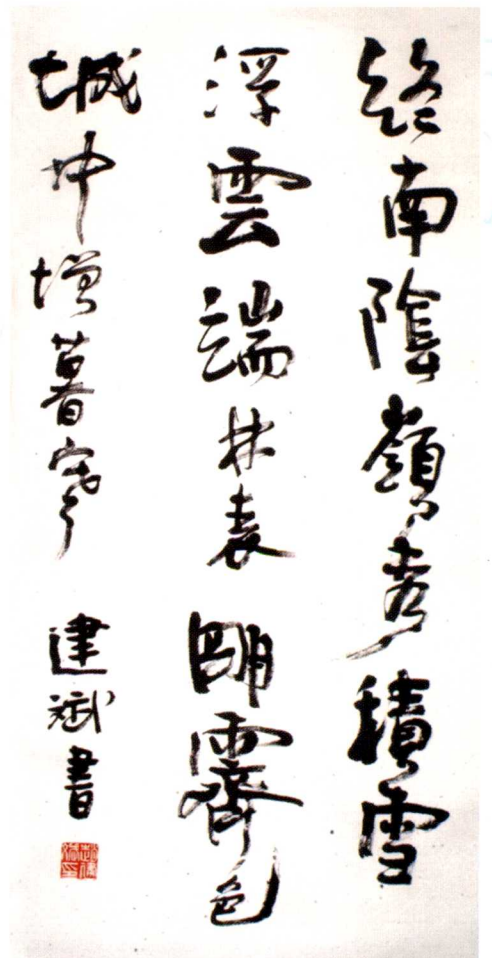 終南陰嶺秀積雪
浮雲端林表明霽色
城中增暮寒 建斌書